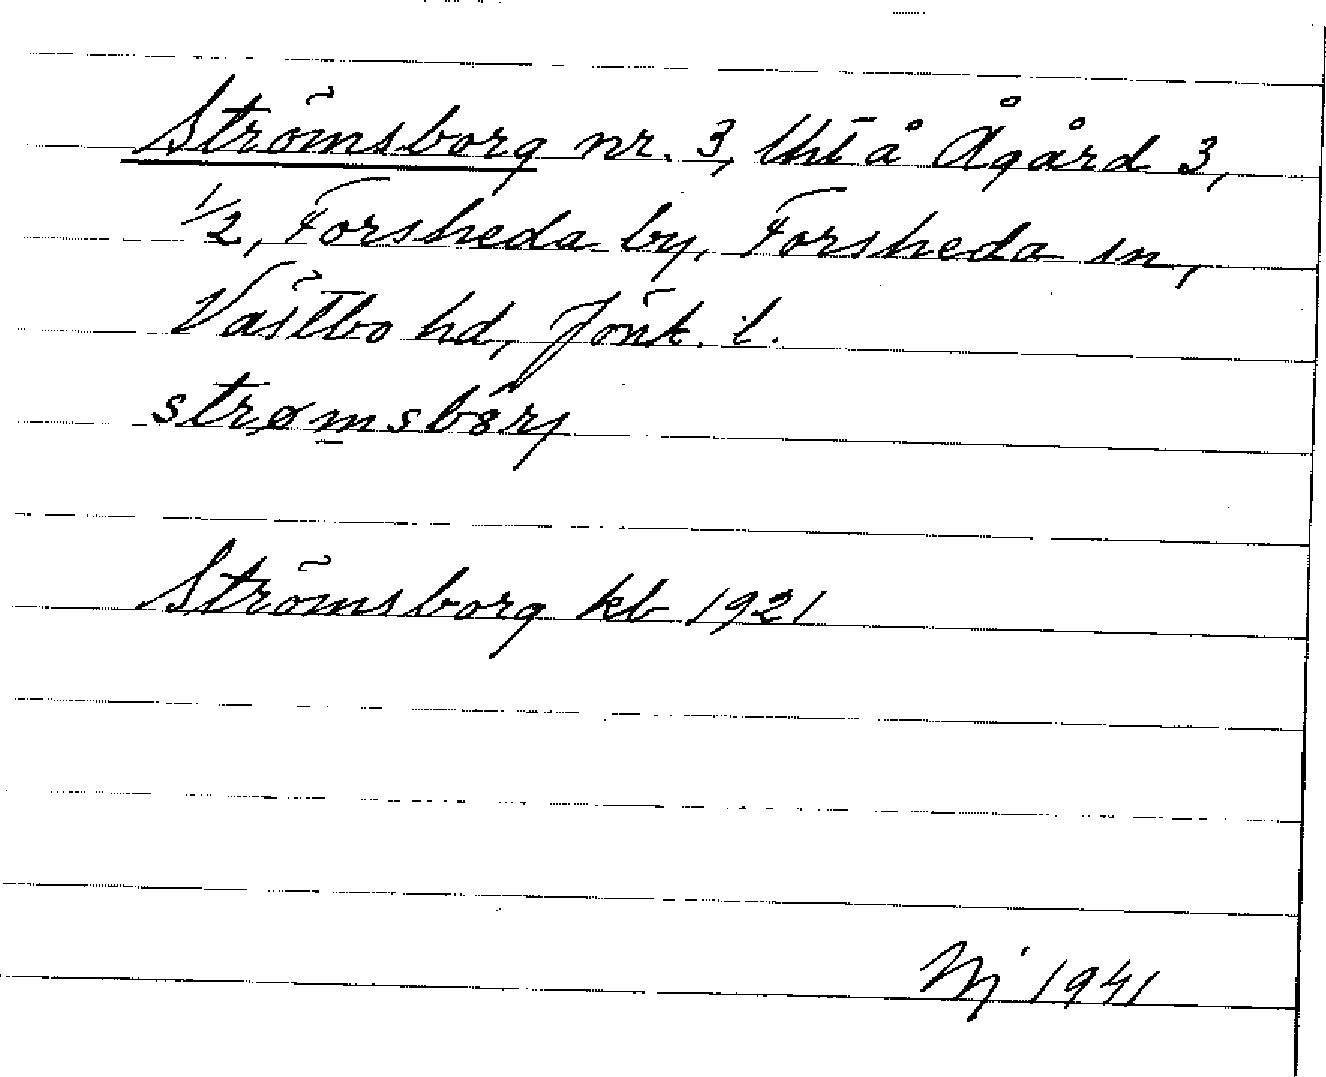 Strömsborg nr. 3, lht å Ågård 3,
1/2, Forsheda by, Forsheda sn,
Västbo hd, Jönk. l.
strømsbørj
Strömsborg kb 1921
Nj 1941